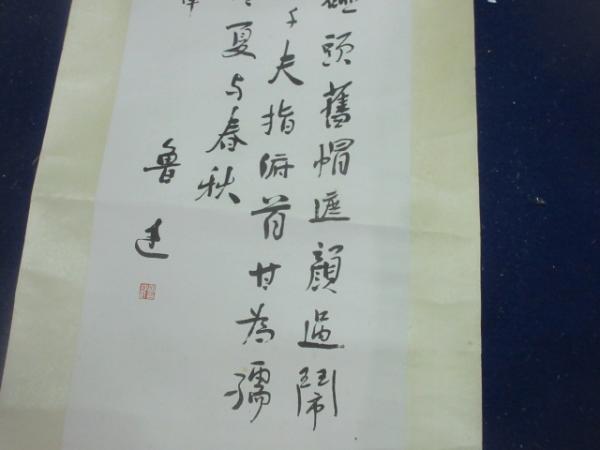 碰頭舊帽遮顏過鬧
千夫指俯首甘為孺
夏与春秋
魯迅